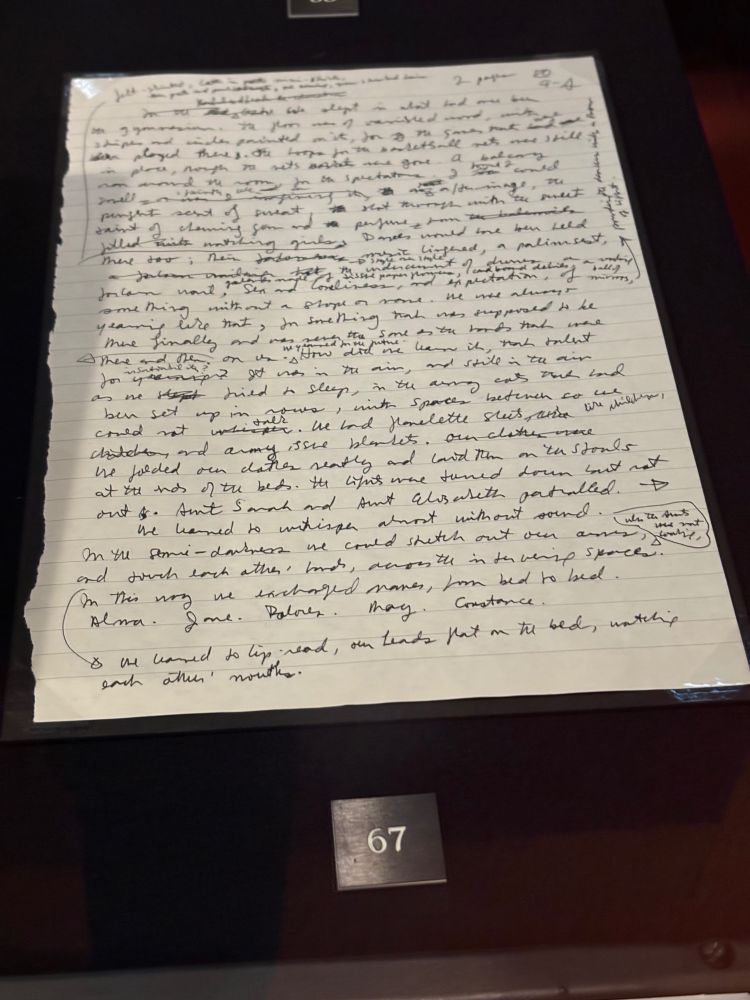 felt-skirted, later in mini-skirts,
2 pages
In the we slept in what had once been
the gymnasium. The floor was of varnished wood, with
stripes and circles painted on it, for the games that
played there; the hoops for the basketball nets were still
in place, though the nets were gone. A balcony
ran around the room, for the spectators, I could
smell afterimage, the
pungent scent of sweat, shot through with the sweet
taint of chewing gum and perfume from
watching girls, Dances would have been held
there too; music lingered, a palimpsest,
style on style undercurrent of drums, a
forlorn wail, garlands made of tissue paper flowers, cardboard devils, a ball of mirrors,
powdering the dancers with a snow of light.
Sex and loneliness, and expectation, of
something without a shape or name. We were always
yearning like that, for something that was supposed to be
there finally and was never the same as the hands that were
there and then. on us.
we yearned for the future.
How did we learn it, that talent
for insatiability? It was in the air, and still in the air
as we tried to sleep, in the army cots that had
been set up in rows, with spaces between so we
could not talk. We had flannelette sheets, like children,
and army issue blankets. our clothes were
We folded our clothes neatly and laid them on the stools
at the ends of the beds. The lights were turned down but not
out. Aunt Sarah and Aunt Elizabeth patrolled. →
We learned to whisper almost without sound.
In the semi-darkness we could stretch out our arms, when the Aunts were not looking,
and touch each others' hands, across the intervening spaces.
In this way we exchanged names, from bed to bed.
Alma. Jane. Dolores. May. Constance.
We learned to lip-read, our heads flat on the bed, watching
each others' mouths.
67